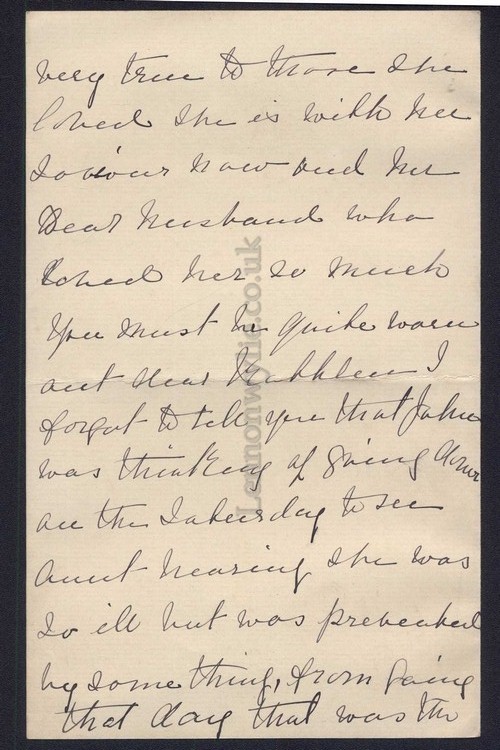 very true to those she
loved she is with her
Saviour now and her
Dear husband who
loved her so much
You must be quite worn
out dear Kathleen I
forgot to tell you that John
was thinking of going down
on the Saturday to see
Aunt hearing she was
so ill but was prevented
by some thing, from going
that day that was the
Lennonwylie.co.uk